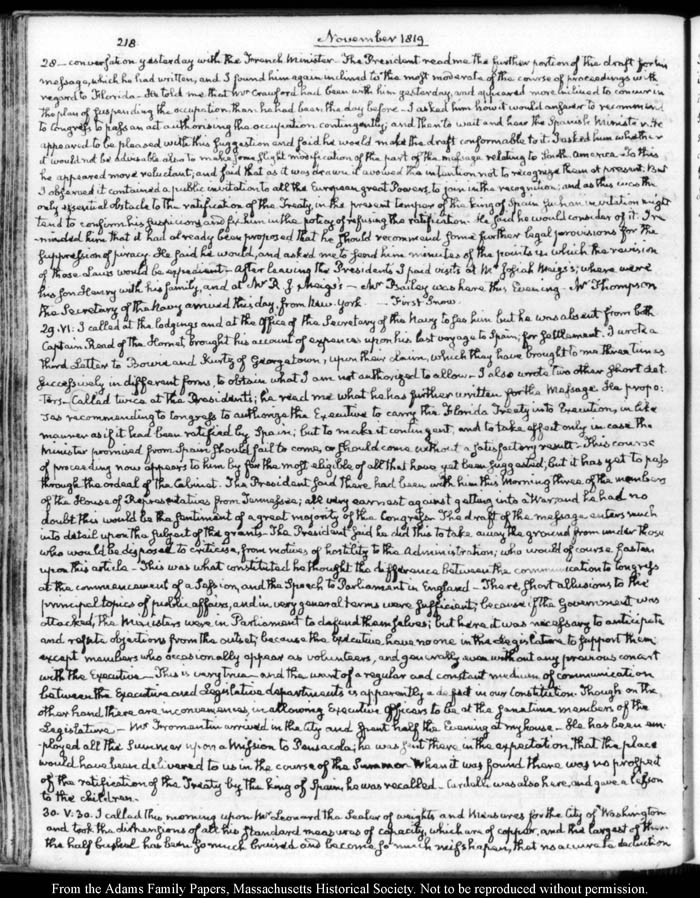 218
November 1819
28 — conversation yesterday with the French Minister — The President read me the further portion of the draft for his
message, which he had written, and I found him again inclined to the most moderate of the course of proceedings with
regard to Florida. He told me that Mr Crawford had been with him yesterday, and appeared more inclined to concur in
the plan of suspending the occupation than he had been the day before — I asked him how it would answer to recommend
to Congress to pass an act authorising the occupation contingently; and then to wait and hear the Spanish Minister — He
appeared to be pleased with this suggestion and said he would make the draft conformable to it. I asked him whether
it would not be advisable also to make some slight modification of the part of the message relating to South America — To this
he appeared more reluctant; and said that as it was drawn it avowed the intention not to recognize them at present. But
I observed it contained a public invitation to all the European great Powers, to join in the recognition; and as this was the
only essential obstacle to the ratification of the Treaty, in the present temper of the King of Spain such an invitation might
tend to confirm his suspicions and fix him in the policy of refusing the ratification. He said he would consider of it. I re-
-minded him that it had already been proposed that he should recommend some further legal provisions for the
suppression of piracy. He said he would, and asked me to send him minutes of the points in which the revision
of those Laws would be expedient — After leaving the President's I paid visits at Mr Josiah Meigs's; where were
his son Henry with his family, and at Mr R. J. Meigs's — Mr Bailey was here this Evening — Mr Thompson
the Secretary of the Navy arrived this day, from New-York. — First Snow.
29. VI: I called at the lodgings and at the Office of the Secretary of the Navy to see him but he was absent from both
Captain Read of the Hornet, brought his account of expences upon his last voyage to Spain; for settlement. I wrote a
third Letter to Bowie and Kurtz of Georgetown, upon their claim, which they have brought to me three times
successively in different forms, to obtain what I am not authorized to allow. I also wrote two other short let-
ters. Called twice at the President's; he read me what he has further written for the Message. He propo-
ses recommending to Congress to authorize the Executive to carry the Florida Treaty into Execution, in like
manner as if it had been ratified by Spain; but to make it contingent, and to take effect only in case the
Minister promised from Spain should fail to come, or should come without a satisfactory result. This course
of proceeding now appears to him by far the most eligible of all that have yet been suggested; but it has yet to pass
through the ordeal of the Cabinet. The President said there had been with him this morning three of the members
of the House of Representatives from Tennessee; all very earnest against getting into a War; and he had no
doubt this would be the sentiment of a great majority of the Congress. The draft of the message enters much
into detail upon the subject of the grants — The President said he did this to take away the ground from under those
who would be disposed to criticise, from motives of hostility to the Administration; who would of course fasten
upon this article — This was what constituted he thought the difference between the communication to Congress
at the commencement of a Session, and the Speech to Parliament in England — There short allusions to the
principal topics of public affairs, and in very general terms were sufficient; because if the Government was
attacked, the Ministers were in Parliament to defend themselves; but here it was necessary to anticipate
and refute objections from the outset; because the Executive, have no one in the Legislature to support them
except members who occasionally appear as volunteers, and generally even without any previous concert
with the Executive — This is very true — and the want of a regular and constant medium of communication
between the Executive and Legislative departments is apparently a defect in our Constitution. Though on the
other hand there are inconveniences, in allowing Executive Officers to be at the same time members of the
Legislature — Mr Fromentin arrived in the City and spent half the Evening at my house — He has been em-
ployed all the Summer upon a Mission to Pensacola; he was sent there in the expectation, that the place
would have been delivered to us in the course of the Summer. When it was found there was no prospect
of the ratification of the Treaty by the King of Spain, he was recalled — Cardelli was also here, and gave a lesson
to the children.
30. V: 30. I called this morning upon Mr Leonard the Sealer of weights and Measures for the City of Washington
and took the dimensions of all his standard measures of capacity, which are of copper, and the largest of them
the half bushel has been so much bruised and become so much misshapen, that no accurate deduction
From the Adams Family Papers, Massachusetts Historical Society. Not to be reproduced without permission.